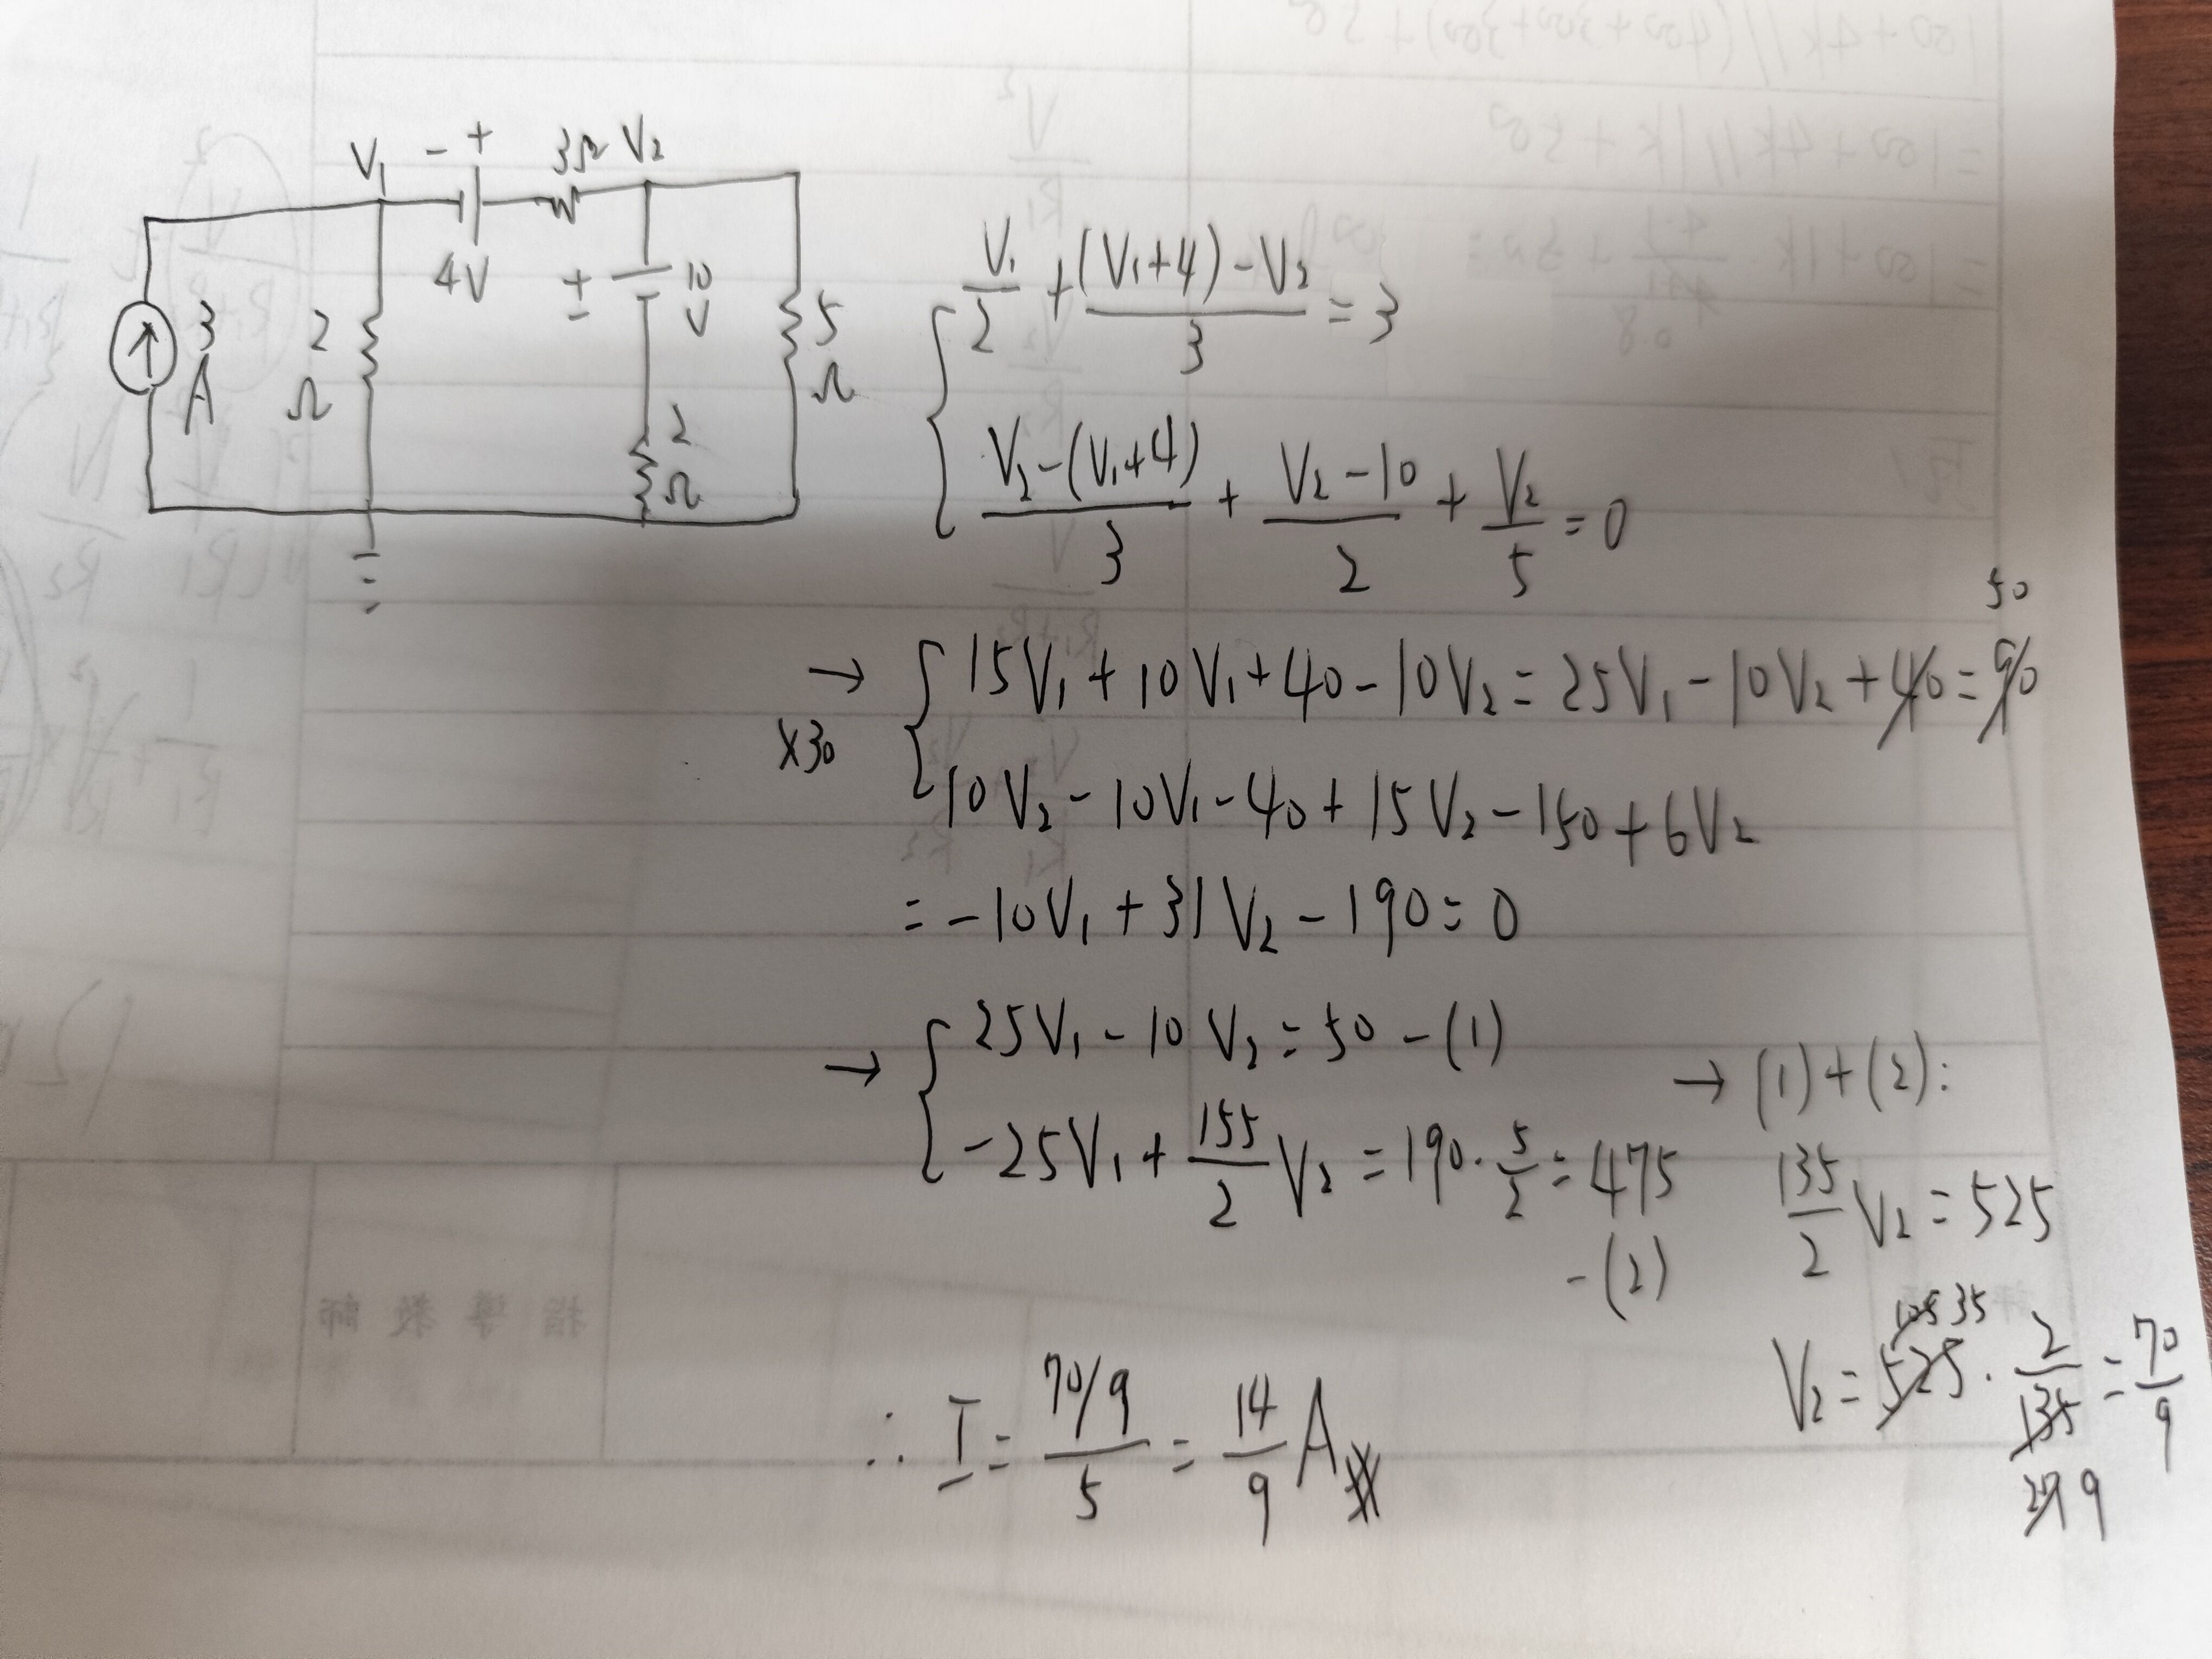 V₁ - + 3Ω V₂
4V
3 A
2 Ω
+ - 10 V
5 Ω
2 Ω
V₁/2 + ((V₁+4)-V₂)/3 = 3
(V₂-(V₁+4))/3 + (V₂-10)/2 + V₂/5 = 0
50
→ 15V₁ + 10V₁ + 40 - 10V₂ = 25V₁ - 10V₂ + 40 = 90
×30
10V₂ - 10V₁ - 40 + 15V₂ - 150 + 6V₂
= -10V₁ + 31V₂ - 190 = 0
→ 25V₁ - 10V₂ = 50 - (1)
-25V₁ + 155/2 V₂ = 190 · 5/2 = 475
- (2)
→ (1)+(2):
135/2 V₂ = 525
105 35
V₂ = 525 · 2/135 = 70/9
27 9
∴ I = (70/9)/5 = 14/9 A
指導教師